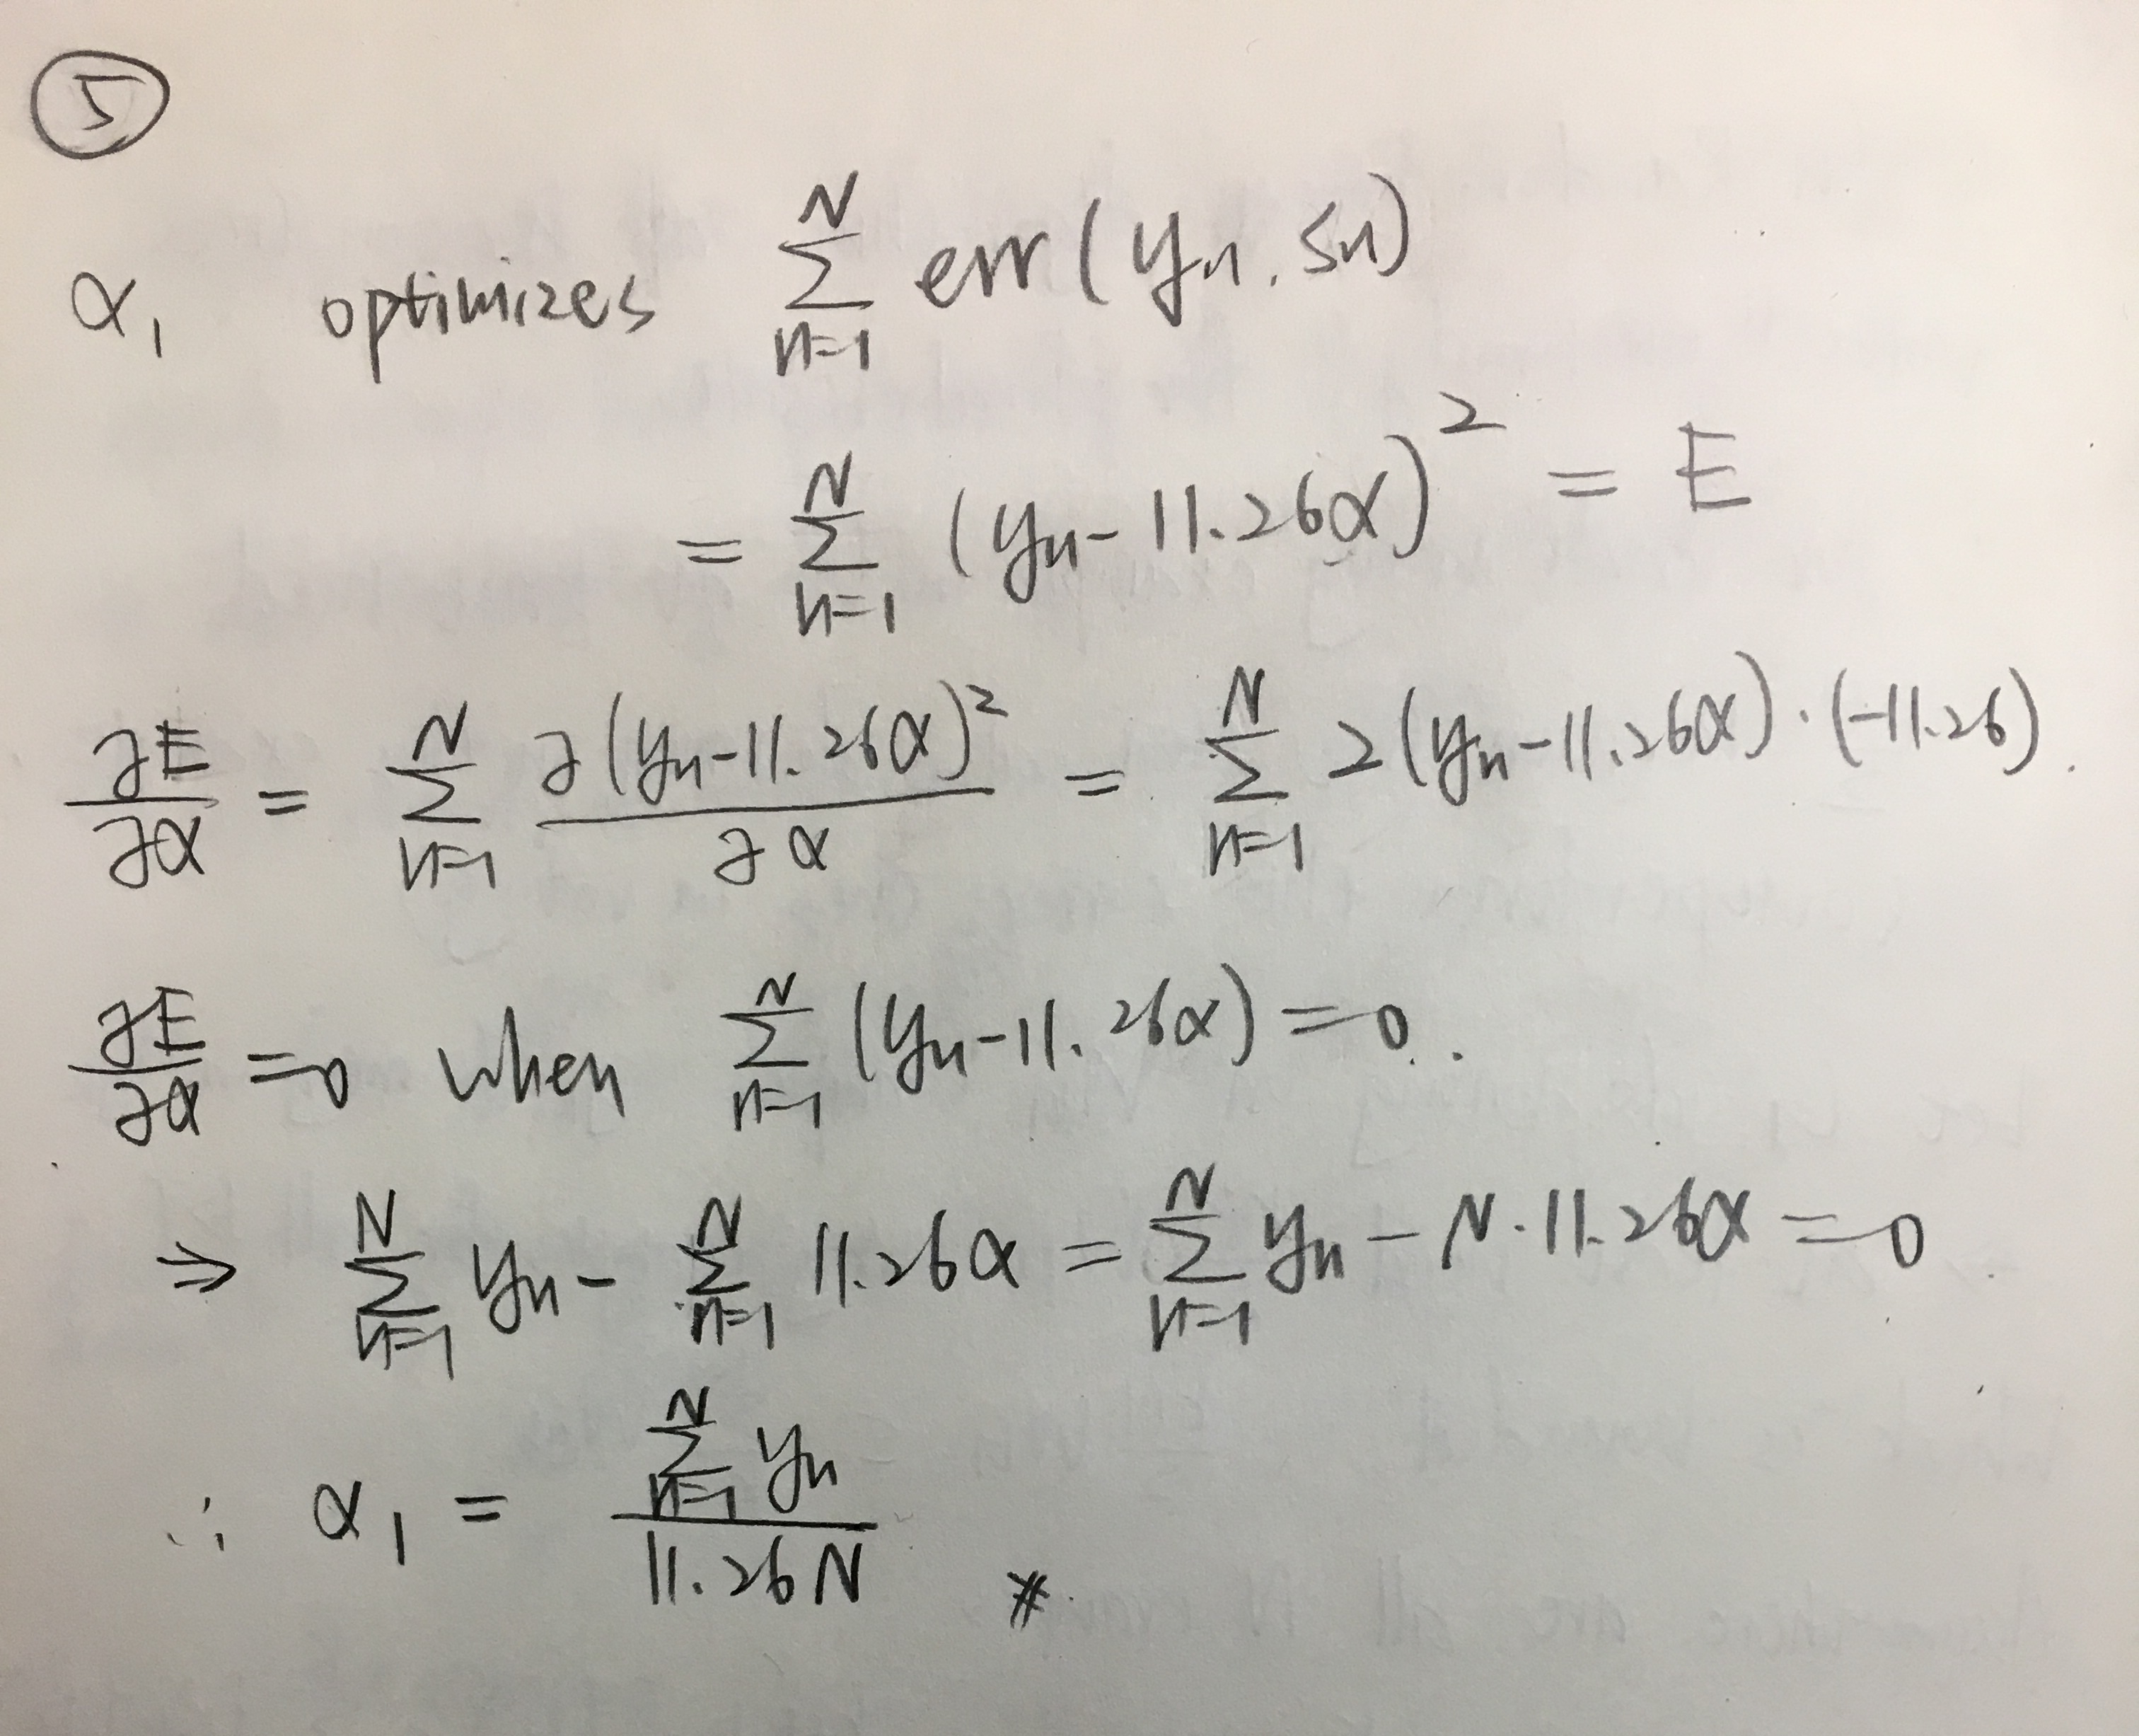 ⑤
α₁ optimizes ∑_{n=1}^{N} err(yₙ, sₙ)
= ∑_{n=1}^{N} (yₙ - 11.26α)² = E
∂E/∂α = ∑_{n=1}^{N} ∂(yₙ - 11.26α)²/∂α = ∑_{n=1}^{N} 2(yₙ - 11.26α)·(-11.26).
∂E/∂α = 0 when ∑_{n=1}^{N} (yₙ - 11.26α) = 0.
⇒ ∑_{n=1}^{N} yₙ - ∑_{n=1}^{N} 11.26α = ∑_{n=1}^{N} yₙ - N·11.26α = 0
∴ α₁ = ∑_{n=1}^{N} yₙ / 11.26N ⋇